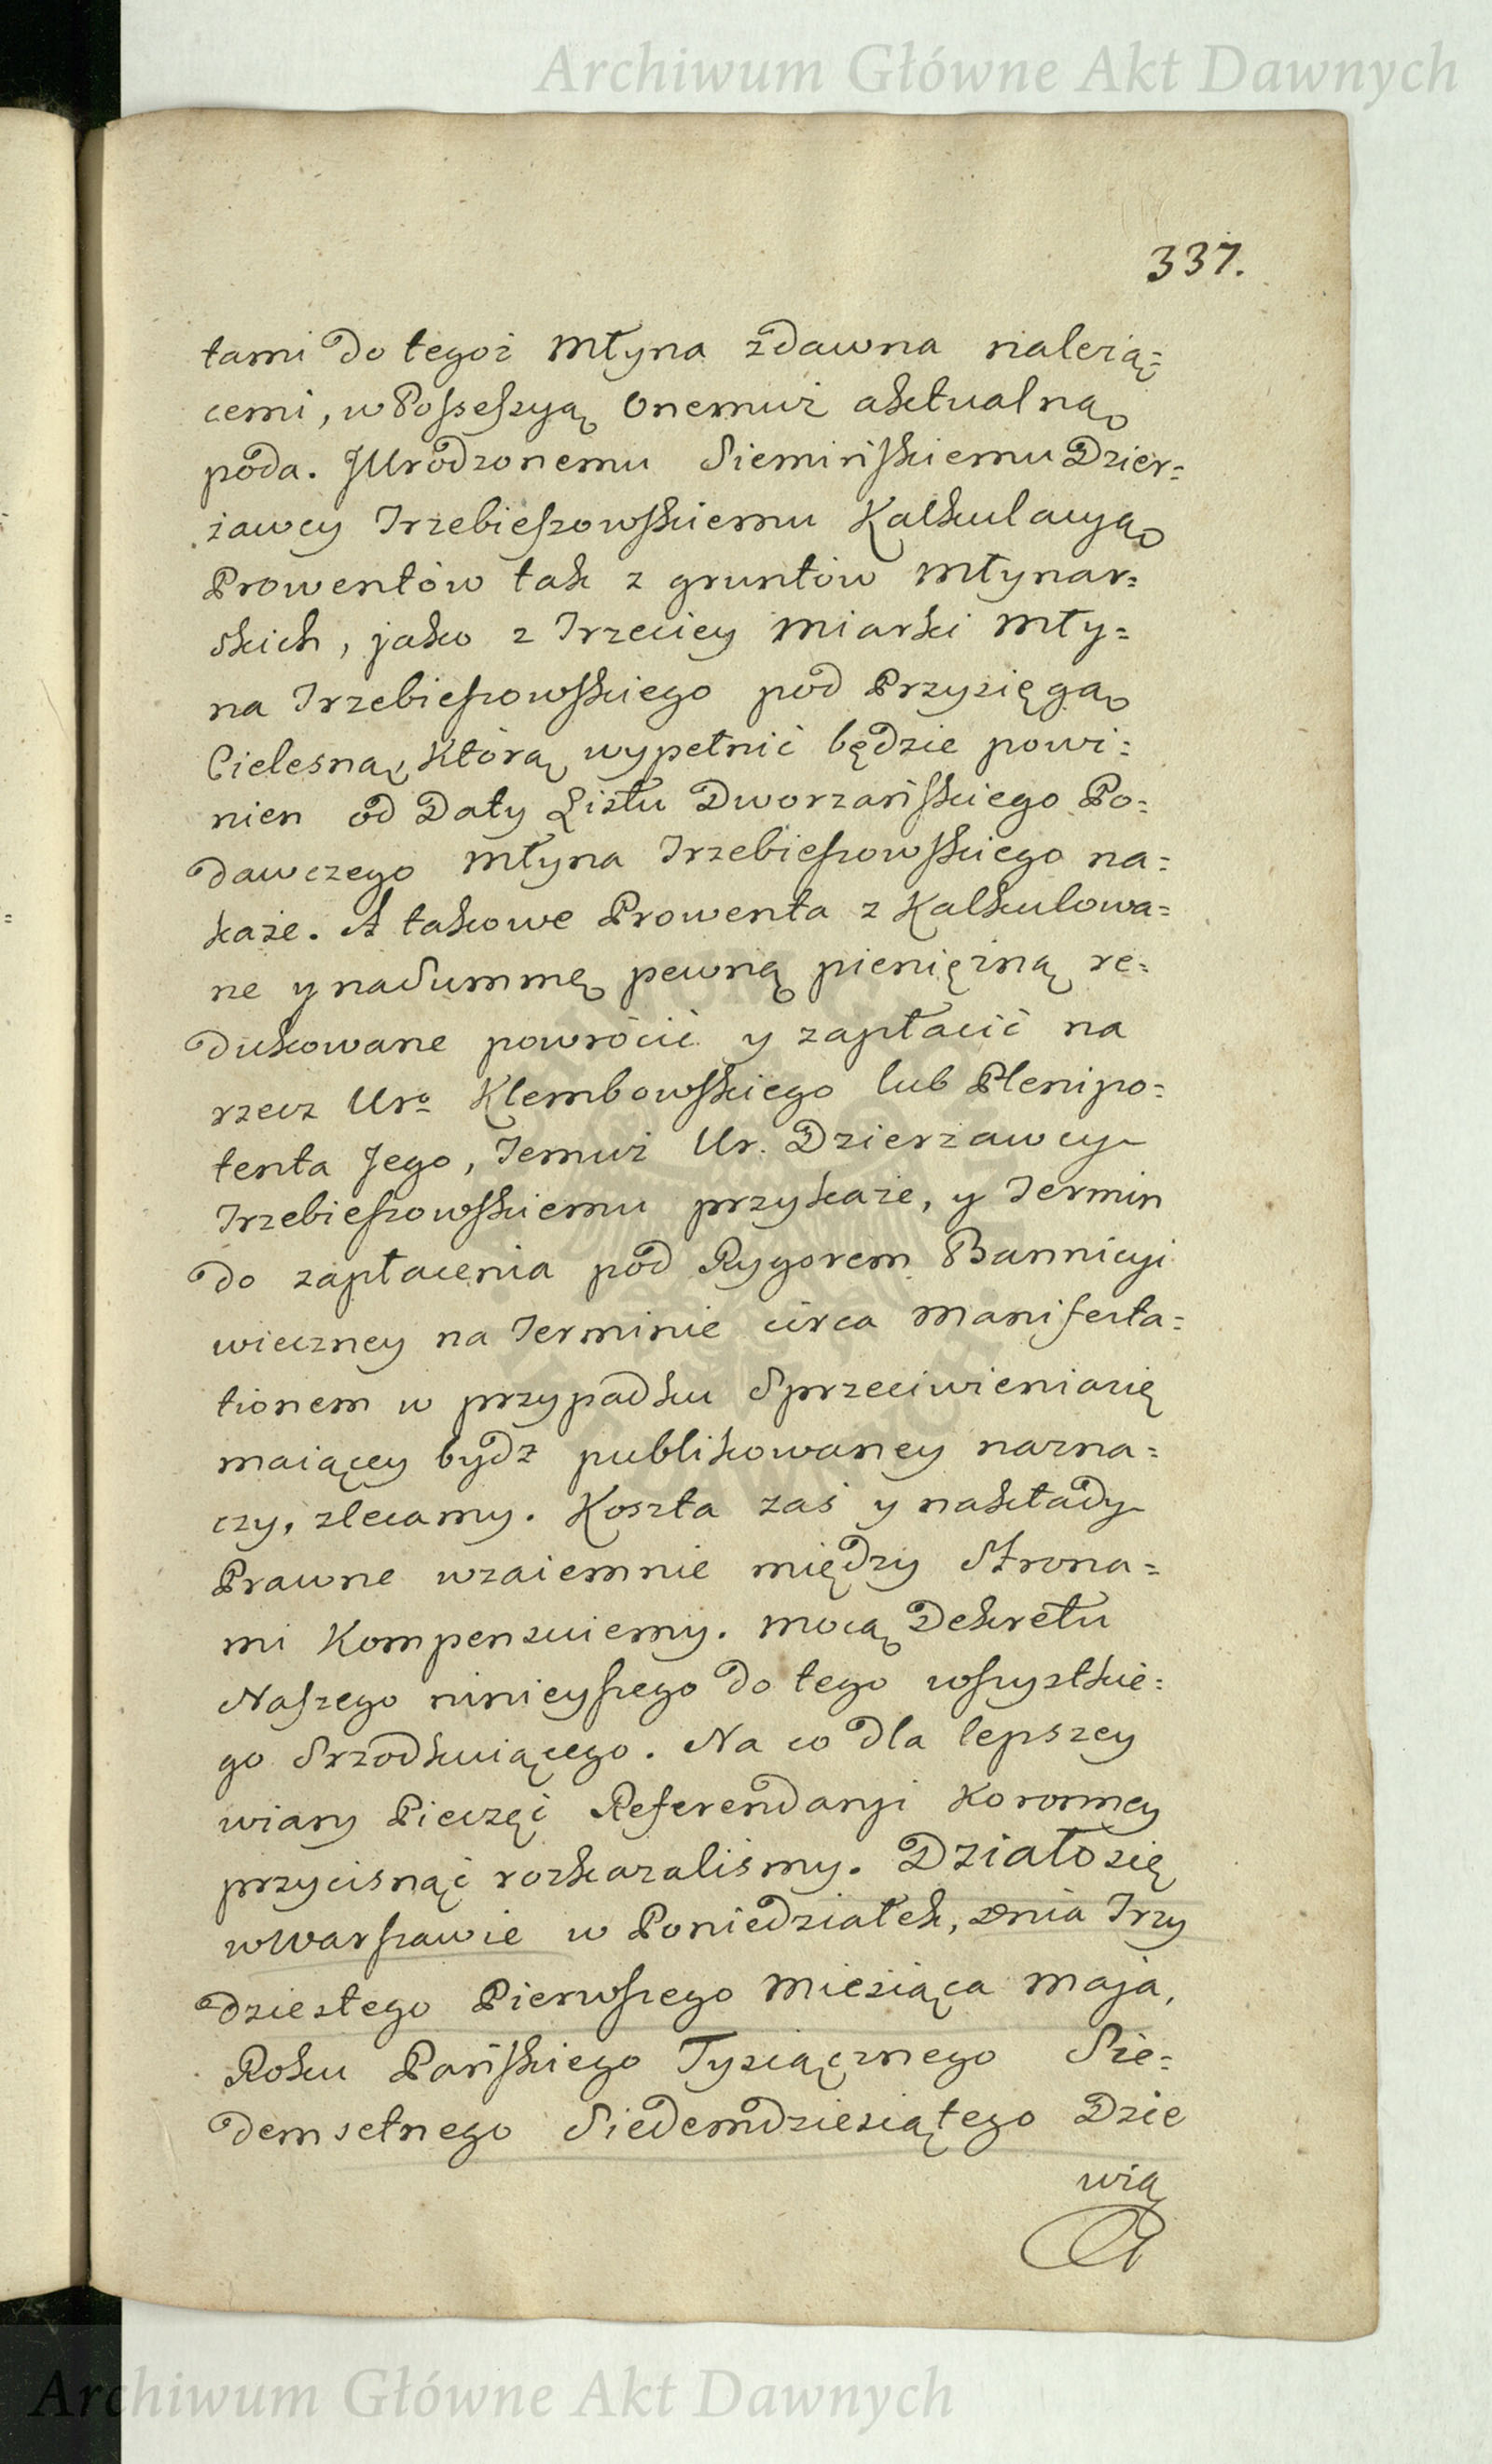 Archiwum Główne Akt Dawnych
337.
tami do tegoż Młyna zdawna należą=
cemi, w Possessyą Onemuż aktualną
poda. JUrodzonemu Siemińskiemu Dzier=
żawcy Trzebieszowskiemu Kalkulacyą
Prowentów tak z gruntów Młynar=
skich, jako z Trzeciey Miarki Mły=
na Trzebieszowskiego pod Przysięgą
Cielesną, Którą wypełnić będzie powi=
nien od Daty Listu Dworzańskiego Po=
dawczego Młyna Trzebieszowskiego na=
każe. A takowe Prowenta z Kalkulowa=
ne y na Summę pewną pieniężną re=
dukowane powrócić y zapłacić na
rzecz Uro Klembowskiego lub Plenipo=
tenta Jego, Temuż Ur. Dzierzawcy
Trzebieszowskiemu przykaże, y Termin
do zapłacenia pod Rygorem Bannicyi
wieczney na Terminie circa Manifesta=
tionem w przypadku Sprzeciwienia się
maiącey bydź publikowaney nazna=
czy, zlecamy. Koszta zaś y nakłady
Prawne wzaiemnie między Strona=
mi Kompensuiemy. Mocą Dekretu
Naszego ninieyszego do tego wszystkie=
go Srzodkuiącego. Na co dla lepszey
wiary Pieczęć Referendaryi Koronney
przycisnąć rozkazaliśmy. Działo się
w Warszawie w Poniedziałek, Dnia Trzy
dziestego Pierwszego Miesiąca Maja,
Roku Pańskiego Tysiącznego Sie=
demsetnego Siedemdziesiątego Dzie
wią
Archiwum Główne Akt Dawnych